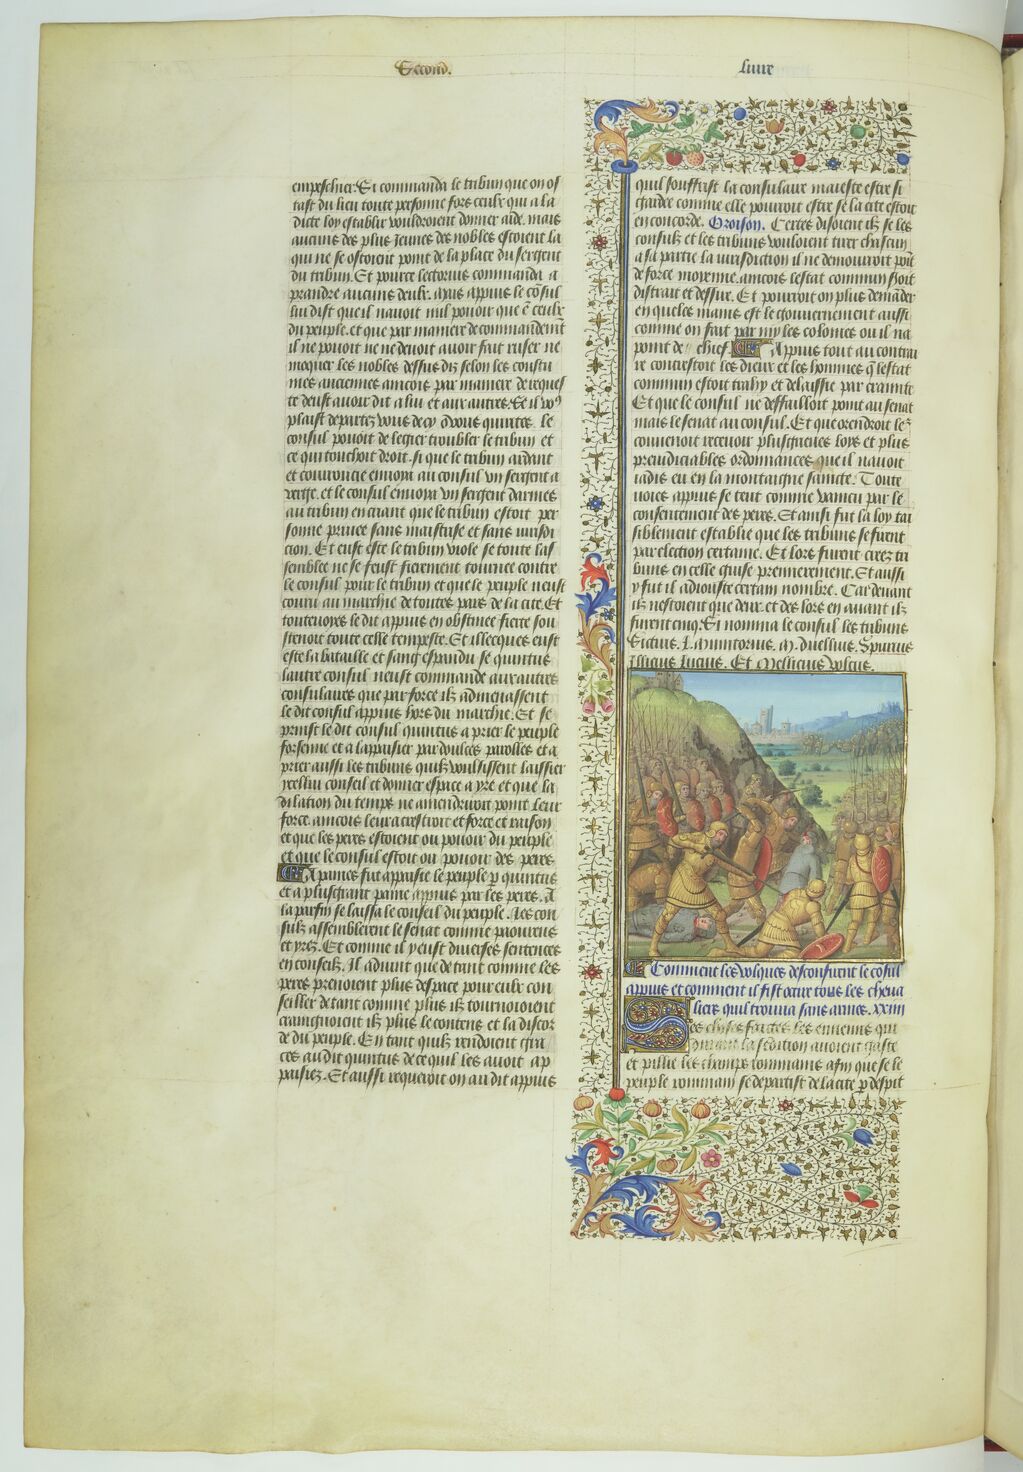 Second.
Livre
empeschier. Si commanda le tribun que on os
tast du lieu toute personne fors ceulx qui a la
dicte loy establir vouldroient donner aide. mais
aucuns des plus jeunes des nobles estoient la
qui ne se ostoient point de la place du sergent
du tribun. Et pource lectorius commanda a
prandre aucuns deulx. mais appius le cōsul
lui dist que il navoit nul povoir que ē ceulx
du peuple. et que par maniere de commandemēt
il ne povoit ne ne devoit avoir fait ruser ne
moquer les nobles dessus diz selon les constu
mes anciennes amcois par maniere de reques
te deust avoir dit a lui et aux autres. Se il vo⁹
plaist departez vous decy o vous quirites. le
consul povoit de legier troubler le tribun et
ce qui touchoit droit. si que le tribun ardant
et courroucie envoya au consul un sergent a
verge. et le consul envoya un sergent darmes
au tribun en criant que le tribun estoit per
sonne privee sans maistrise et sans jurisdi
cion. Et eust este le tribun viole se toute las
semblee ne se feust fierement tournee contre
le consul pour le tribun et que le peuple neust
couru au marchie de toutes pars de la cite. Et
toutesvoyes le dit appius en obstinee fierte sou
stenoit toute celle tempeste. Et illecques eust
este la bataille et sang espandu se quintus
lautre consul neust commande aux autres
consulaires que par force ilz admenassent
le dit consul appius hors du marchie. Et se
prinst le dit consul quintus a prier le peuple
forsenne et a lapaisier par doulces parolles et a
prier aussi les tribuns quilz voulsissent laissier
ycellui conseil et donner espace a yre et que la
dilation du temps ne amendriroit point leur
force. amcois leur acrestroit et force et raison
et que les peres estoient ou povoir du peuple
et que le consul estoit ou povoir des peres
A paines fut appaisie le peuple p quintus
et a plusgrant paine appius par les peres. A
la parfin se laissa le conseil du peuple. Les con
sulz assemblerent le senat comme paoureux
et yrez. Et comme il y eust diverses sentences
en conseilz. Il advint que de tant comme les
peres prenoient plus despace pour eulx con
seiller de tant comme plus ilz tournoioient
craingnoient ilz plus le contens et la discor
de du peuple. En tant quilz rendoient gra
ces au dit quintus de ce quil les avoit ap
paisiez. Et aussi requeroit on au dit appius
quil souffrist la consulaire maieste estre si
gardee comme elle pourroit estre se la cite estoit
en concorde. Oroison. Certes disoient ilz se les
consulz et les tribuns vouloient tirer chascun
a sa partie la jurisdiction il ne demourroit poīt
de force moyenne. amcois lestat commun seroit
distrait et dessire. Et pourroit on plus demāder
en queles mains est le gouvernement aussi
comme on fait par my les colomes ou il na
point de chief. Appius tout au contrai
re contrestoit les dieux et les hommes q̄ lestat
commun estoit trahy et delaissie par crainte
Et que le consul ne deffailloit point au senat
mais le senat au consul. Et que orendroit les
convenoit recevoir plusgriefves loys et plus
preiudiciables ordonnances que il navoit
iadis eu en la montaigne saincte. Toute
voies appius se teut comme vaincu par le
consentement des peres. Et ainsi fut la loy tai
siblement establie que les tribuns se feirent
par election certaine. Et lors furent creez tri
buns en celle guise premierement. Et aussi
y fut il adiouste certain nombre. Car devant
ilz nestoient que deux. et des lors en avant ilz
furent cinq. Si nomma le consul les tribuns
Sicius. L. Munitorius. M. Duellius. Spurius
Jlicius lucius. Et Mellicius volcus.
Comment les volques desconfirent le cōsul
appius et comment il fist occire tous les cheva
liers quil trouva sans armes. xxiiii
Ces choses faictes les ennemis qui
durant la sedition avoient gaste
et pillie les champs rommains afin que se le
peuple rommain se departist de la cite p despit